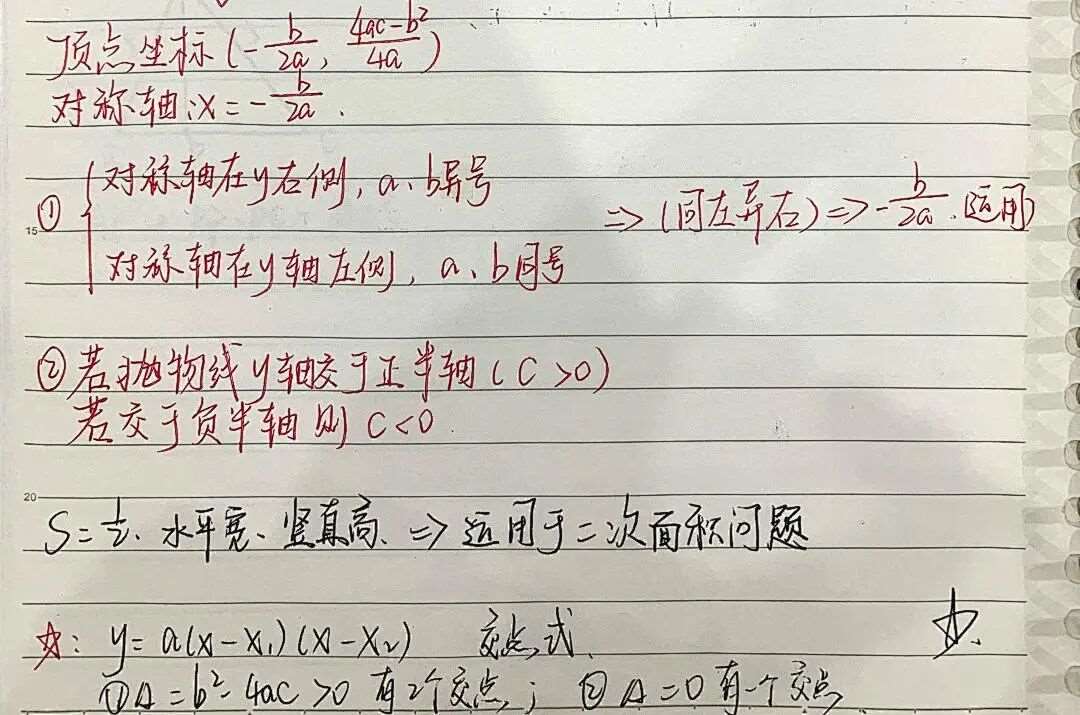 顶点坐标(-b/2a, 4ac-b²/4a)
对称轴:x=-b/2a.
① { 对称轴在y右侧, a、b异号
⇒(同左异右)⇒-b/2a.运用)
对称轴在y轴左侧, a、b同号
②若抛物线y轴交于正半轴(C>0)
若交于负半轴则C<0
S=1/2·水平宽·竖直高. ⇒运用于二次面积问题
☆: y=a(x-x₁)(x-x₂) 交点式. ☆.
①Δ=b²-4ac>0 有2个交点; ②Δ=0 有一个交点
15
20